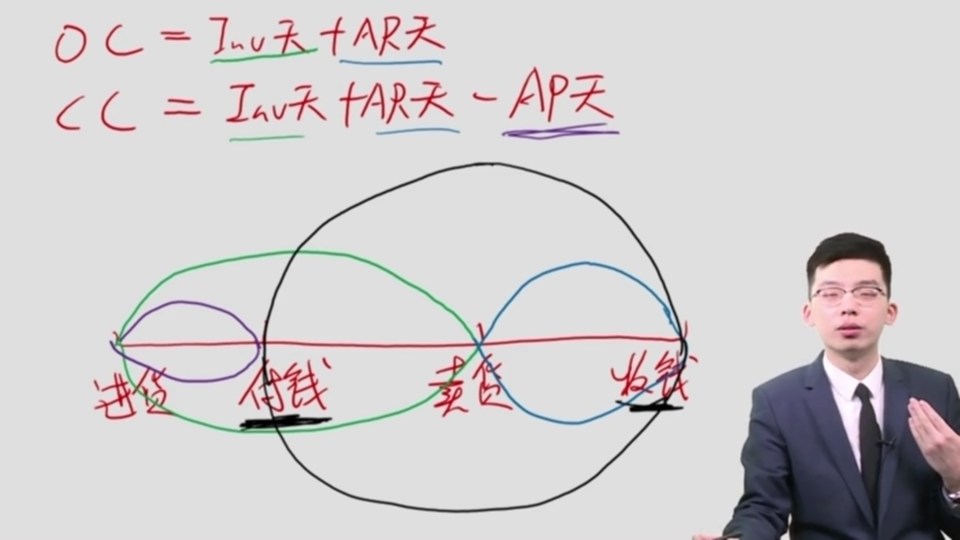 OC = Inv天 + AR天
CC = Inv天 + AR天 - AP天
进货 付钱 卖货 收钱